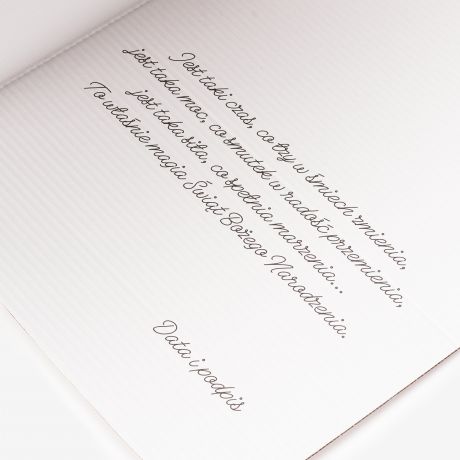 Jest taki czas, co łzy w śmiech zmienia,
jest taka moc, co smutek w radość przemienia,
jest taka siła, co spełnia marzenia...
To właśnie magia Świąt Bożego Narodzenia.
Data i podpis